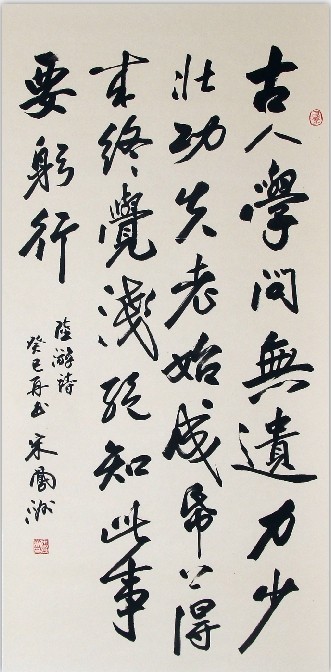 古人學問無遺力少
壯功夫老始成帋上得
来終覺淺絕知此事
要躬行
陸游詩
癸巳书 宋鳳洲